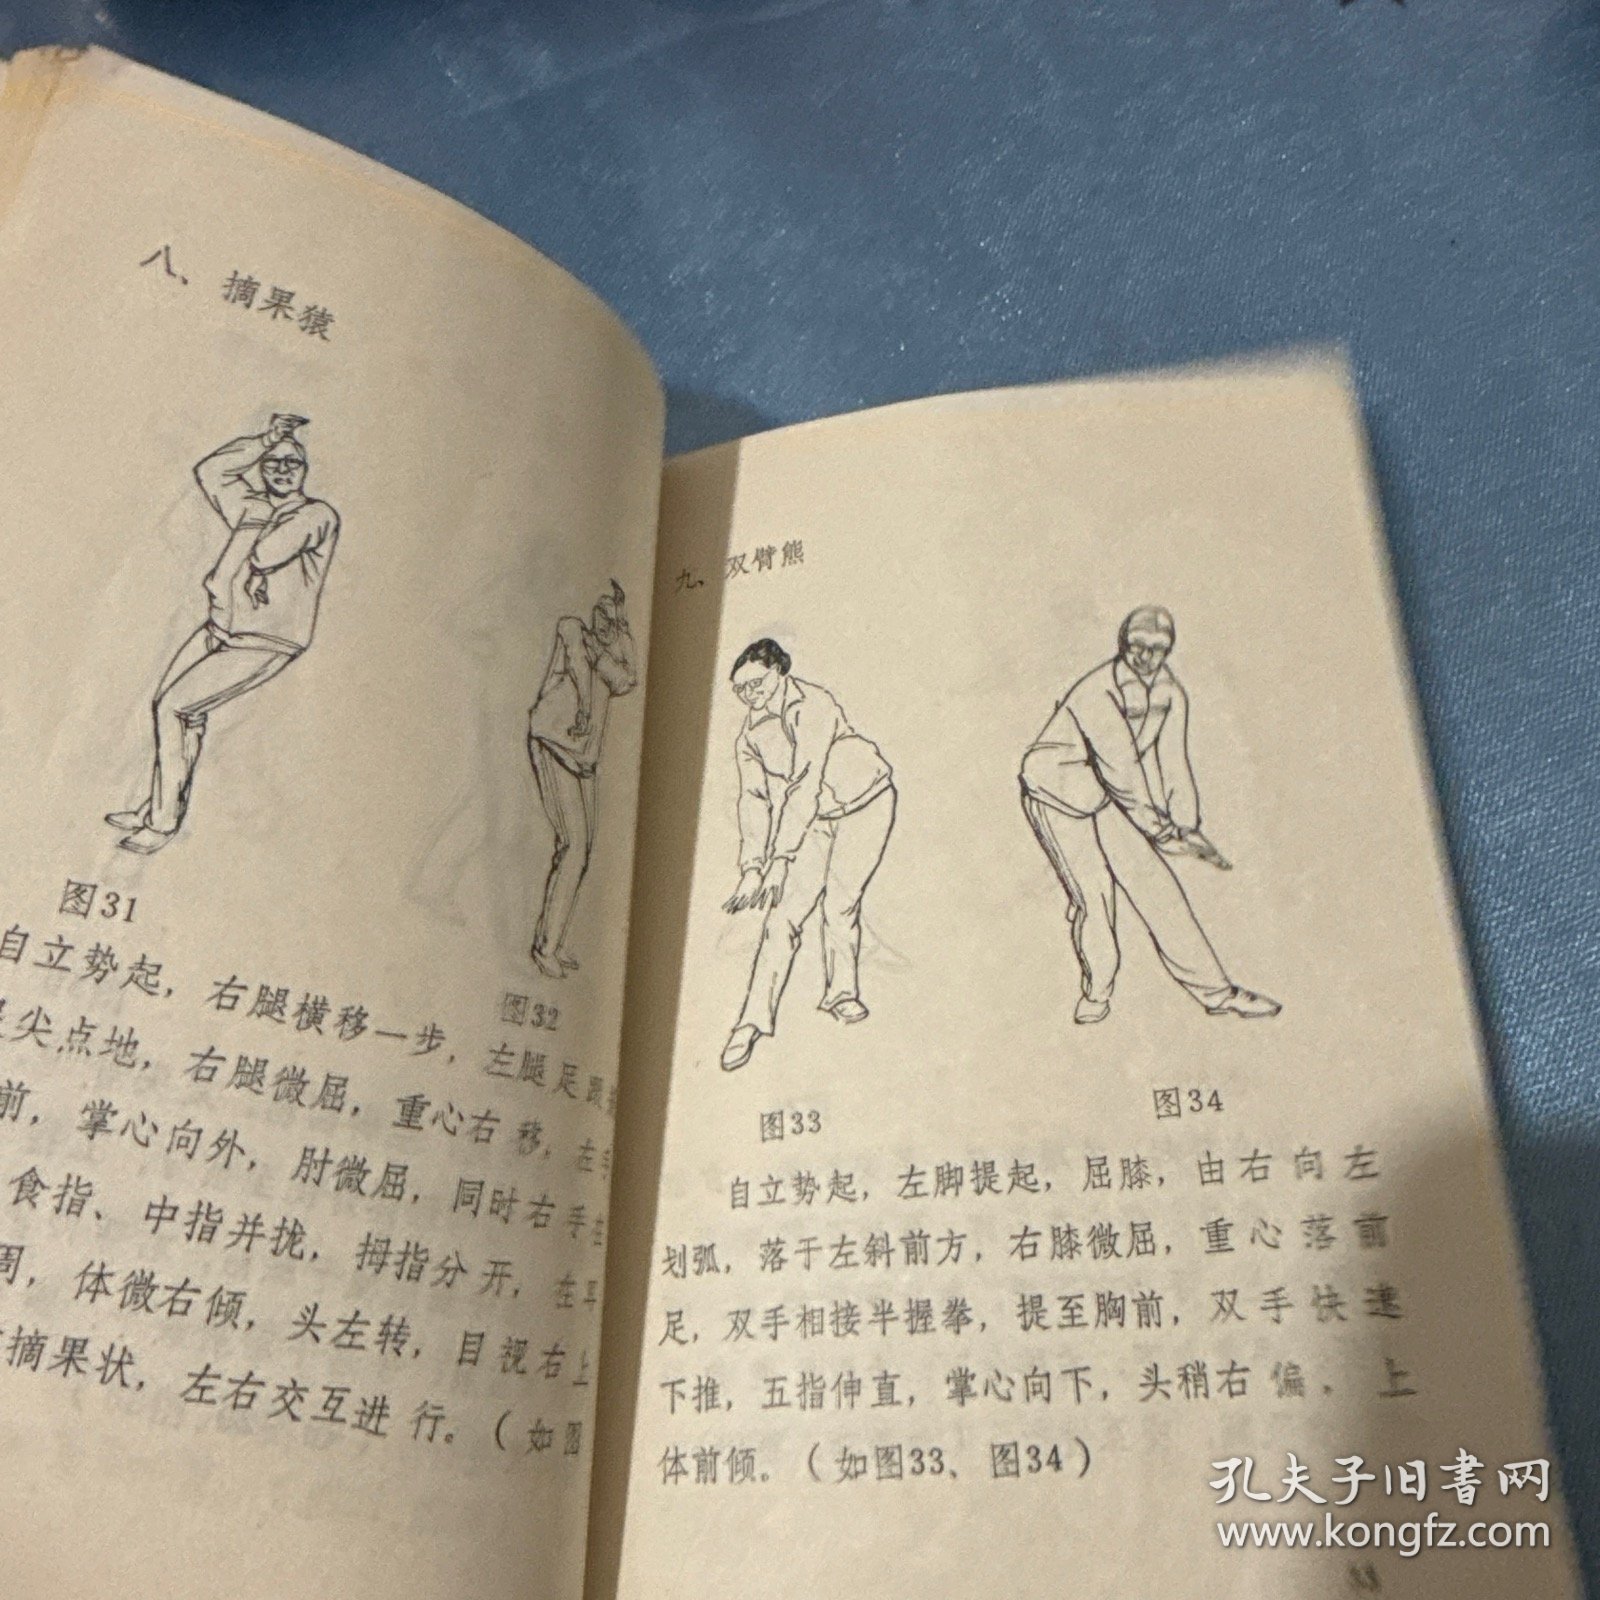 八、摘果猿
图31
图32
自立势起，右腿横移一步，左腿足跟
尖点地，右腿微屈，重心右移，左
前，掌心向外，肘微屈，同时右手
食指、中指并拢，拇指分开，在
周，体微右倾，头左转，目视右上
摘果状，左右交互进行。（如图
九、双臂熊
图33
图34
自立势起，左脚提起，屈膝，由右向左
划弧，落于左斜前方，右膝微屈，重心落前
足，双手相接半握拳，提至胸前，双手快速
下推，五指伸直，掌心向下，头稍右偏，上
体前倾。（如图33、图34）
孔夫子旧书网
www.kongfz.com